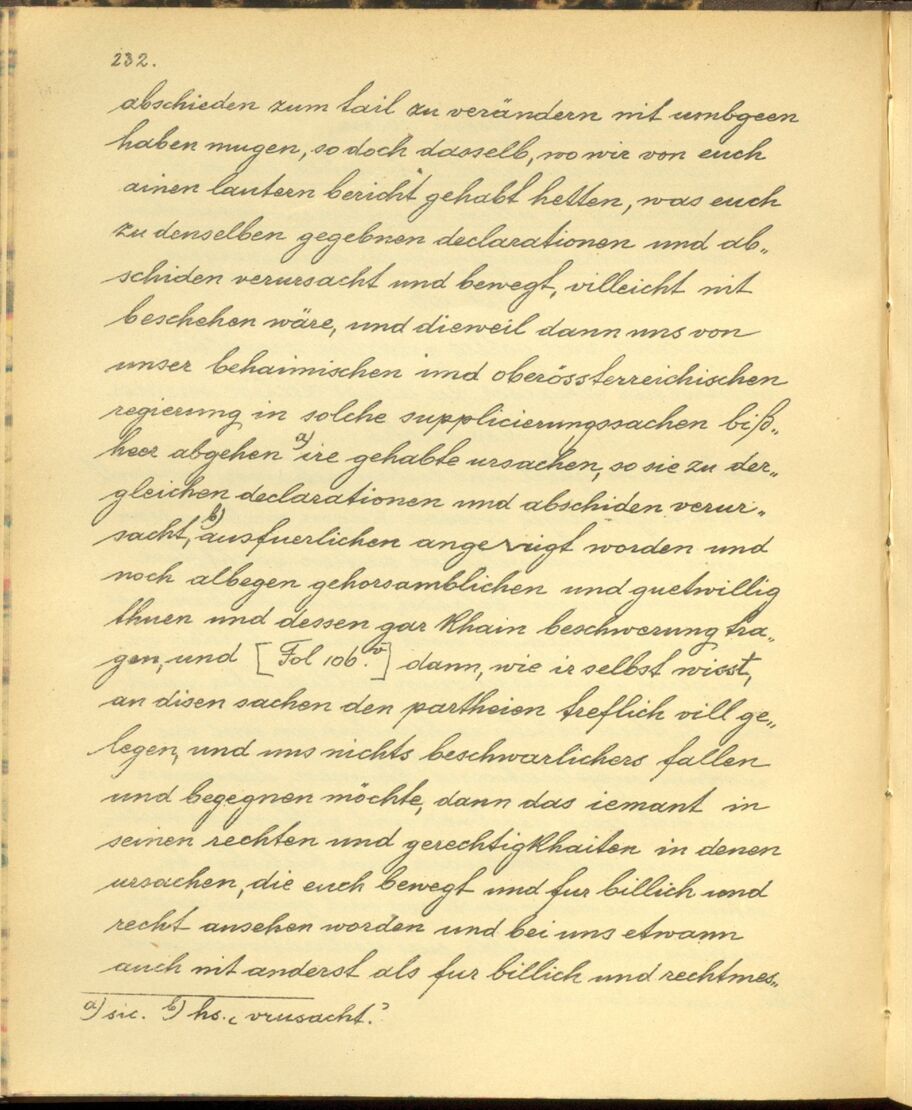 232.
abschieden zum tail zu verändern nit umbgeen
haben mugen, so doch dasselb, wo wir von euch
ainen lautern bericht gehabt hetten, was euch
zu denselben gegebnen declarationen und ab„
schiden verursacht und bewegt, villeicht nit
beschehen wäre, und dieweil dann uns von
unser behaimischen und oberössterreichischen
regierung in solche supplicierungssachen biß„
heer abgehen a) ire gehabte ursachen, so sie zu der„
gleichen declarationen und abschiden verur„
sacht, b) ausfuerlichen angezeigt worden und
noch albegen gehorsamblichen und guetwillig
thuen und dessen gar khain beschwerung tra„
gen, und [Fol 106.v] dann, wie ir selbst wisst,
an disen sachen den partheien treflich vill ge„
legen, und uns nichts beschwarlichers fallen
und begegnen möchte, dann das iemant in
seinen rechten und gerechtigkhaiten in denen
ursachen, die euch bewegt und fur billich und
recht ansehen worden und bei uns etwann
auch nit anderst als fur billich und rechtmes„
a) sic. b) hs. „vrusacht.“